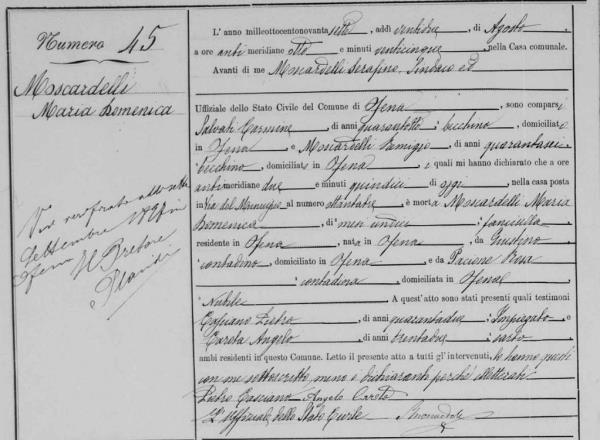 Numero 45
Moscardelli
Maria Domenica
Per verificato alli otto
Settembre 1897 in
Ofena Il Pretore
L'anno milleottocentonovanta sette, addì ventidue, di Agosto,
a ore anti meridiane otto e minuti venticinque, nella Casa comunale.
Avanti di me Moscardelli Serafino, Sindaco ed
Uffiziale dello Stato Civile del Comune di Ofena, sono comparsi
Salvati Carmine, di anni quarantotto, becchino, domiciliato
in Ofena e Moscardelli Remigio, di anni quarantasei
becchino, domiciliato in Ofena, i quali mi hanno dichiarato che a ore
anti meridiane due e minuti quindici di oggi, nella casa posta
in Via del Municipio al numero ottantatre, è morta Moscardelli Maria
Domenica, di mesi undici, fanciulla,
residente in Ofena, nata in Ofena, da Giustino,
contadino, domiciliato in Ofena e da Pacione Rosa,
contadina, domiciliata in Ofena,
Nubile A quest'atto sono stati presenti quali testimoni
Casciano Pietro, di anni quarantadue, Impiegato, e
Careta Angelo, di anni trentadue, sarto,
ambi residenti in questo Comune. Letto il presente atto a tutti gl'intervenuti, lo hanno questi
con me sottoscritto, meno i dichiaranti perchè illetterati
Pietro Casciano Angelo Careta
L'Uffiziale dello Stato Civile